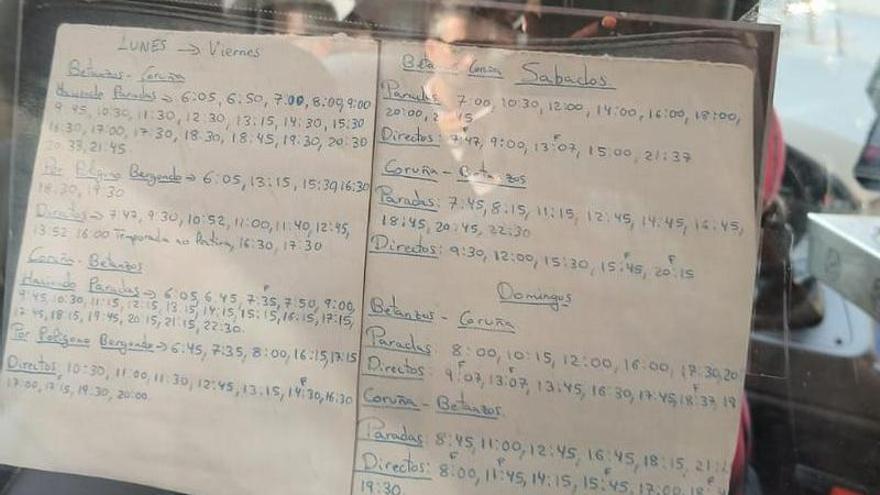 LUNES → Viernes
Betanzos - Coruña
Haciendo Paradas → 6:05, 6:50, 7:00, 8:00, 9:00
9:45, 10:30, 11:30, 12:30, 13:15, 14:30, 15:30
16:30, 17:00, 17:30, 18:30, 18:45, 19:30, 20:30
20:33, 21:45
Por Polígino Bergondo → 6:05, 13:15, 15:30, 16:30
18:30, 19:30
Directos → 7:47, 9:30, 10:52, 11:00, 11:40, 12:45,
13:52 16:00 Temporada no 16:30, 17:30
Coruña - Betanzos
Haciendo Paradas → 6:05, 6:45, 7:35, F 7:50, 9:00,
9:45, 10:30, 11:15, 12:15, 13:15, 14:15, 15:15, 16:15, 17:15,
17:45, 18:15, 19:45, 20:15, 21:15, 22:30.
Por Polígono Bergondo → 6:45, 7:35, 8:00, 16:15, 17:15
Directos: 10:30, 11:00, 11:30, 12:45, 13:15, 14:30, F 16:30
17:00, 17:15, 19:30, 20:00.
Sabados
Coruña
Paradas 7:00, 10:30, 12:00, 14:00, 16:00, 18:00,
20:00,
Directos: 7:47, 9:00, 13:07, F 15:00, 21:37
Coruña - Betanzos
Paradas: 7:45, 8:15, 11:15, 12:45, 14:45, 16:45,
18:45, 20:45, 22:30
Directos: 9:30, 12:00, 15:30, 15:45, F 20:15 F
Domingos
Betanzos - Coruña
Paradas: 8:00, 10:15, 12:00, 16:00, 17:30, 20
Directos: 9:07, F 13:07, F 13:45, 16:30, 17:45, 18:37, F 19
Coruña - Betanzos.
Paradas: 8:45, 11:00, 12:45, 16:45, 18:15,
Directos: 8:00, F 11:45, F 14:15, 15:45, F 17:00,
19:30